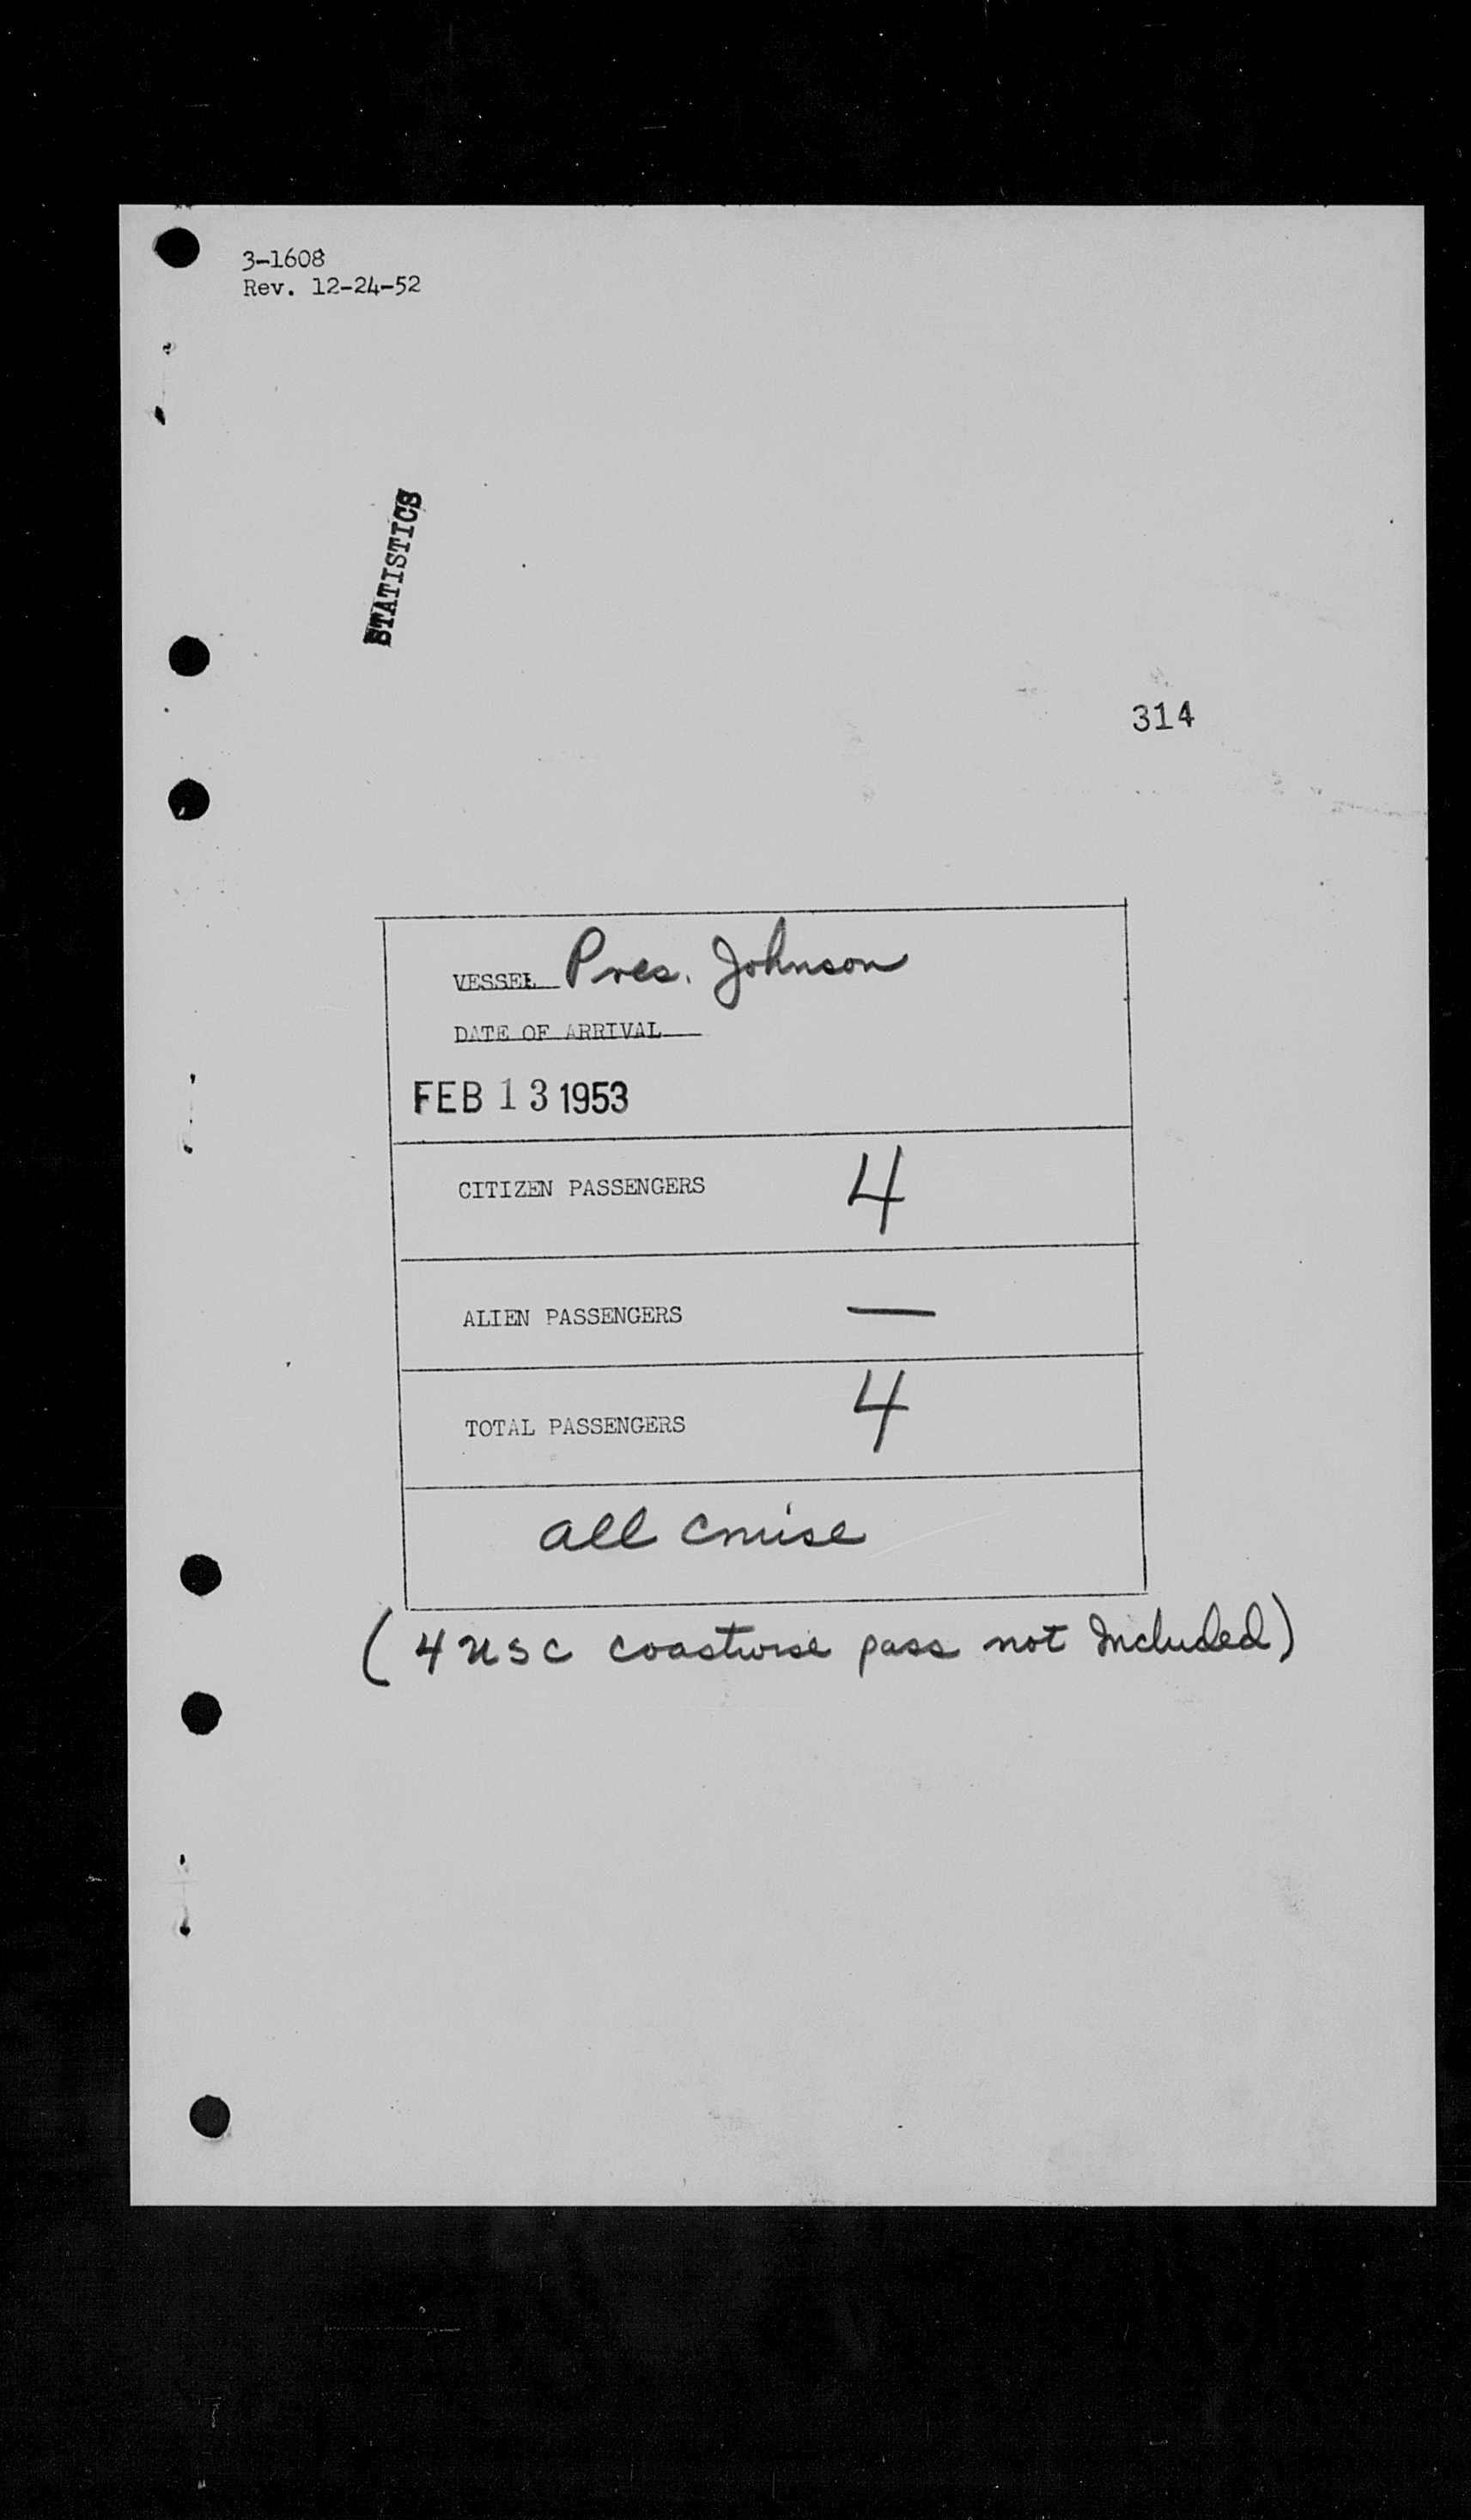 3-1608
Rev. 12-24-52
STATISTICS
314
VESSEL Pres. Johnson
DATE OF ARRIVAL
FEB 13 1953
CITIZEN PASSENGERS 4
ALIEN PASSENGERS —
TOTAL PASSENGERS 4
all cruise
(4 USC coastwise pass not Included)